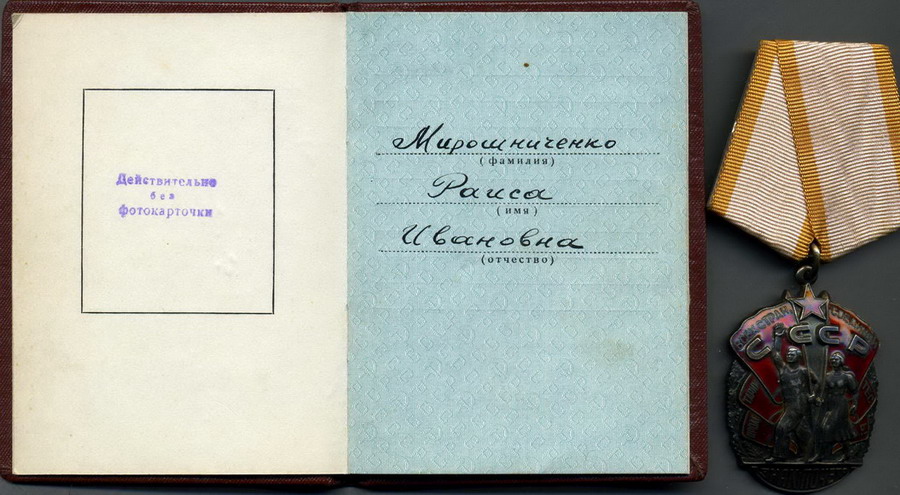 Действительно
без
фотокарточки
Мирошниченко
(фамилия)
Раиса
(имя)
Ивановна
(отчество)
СССР